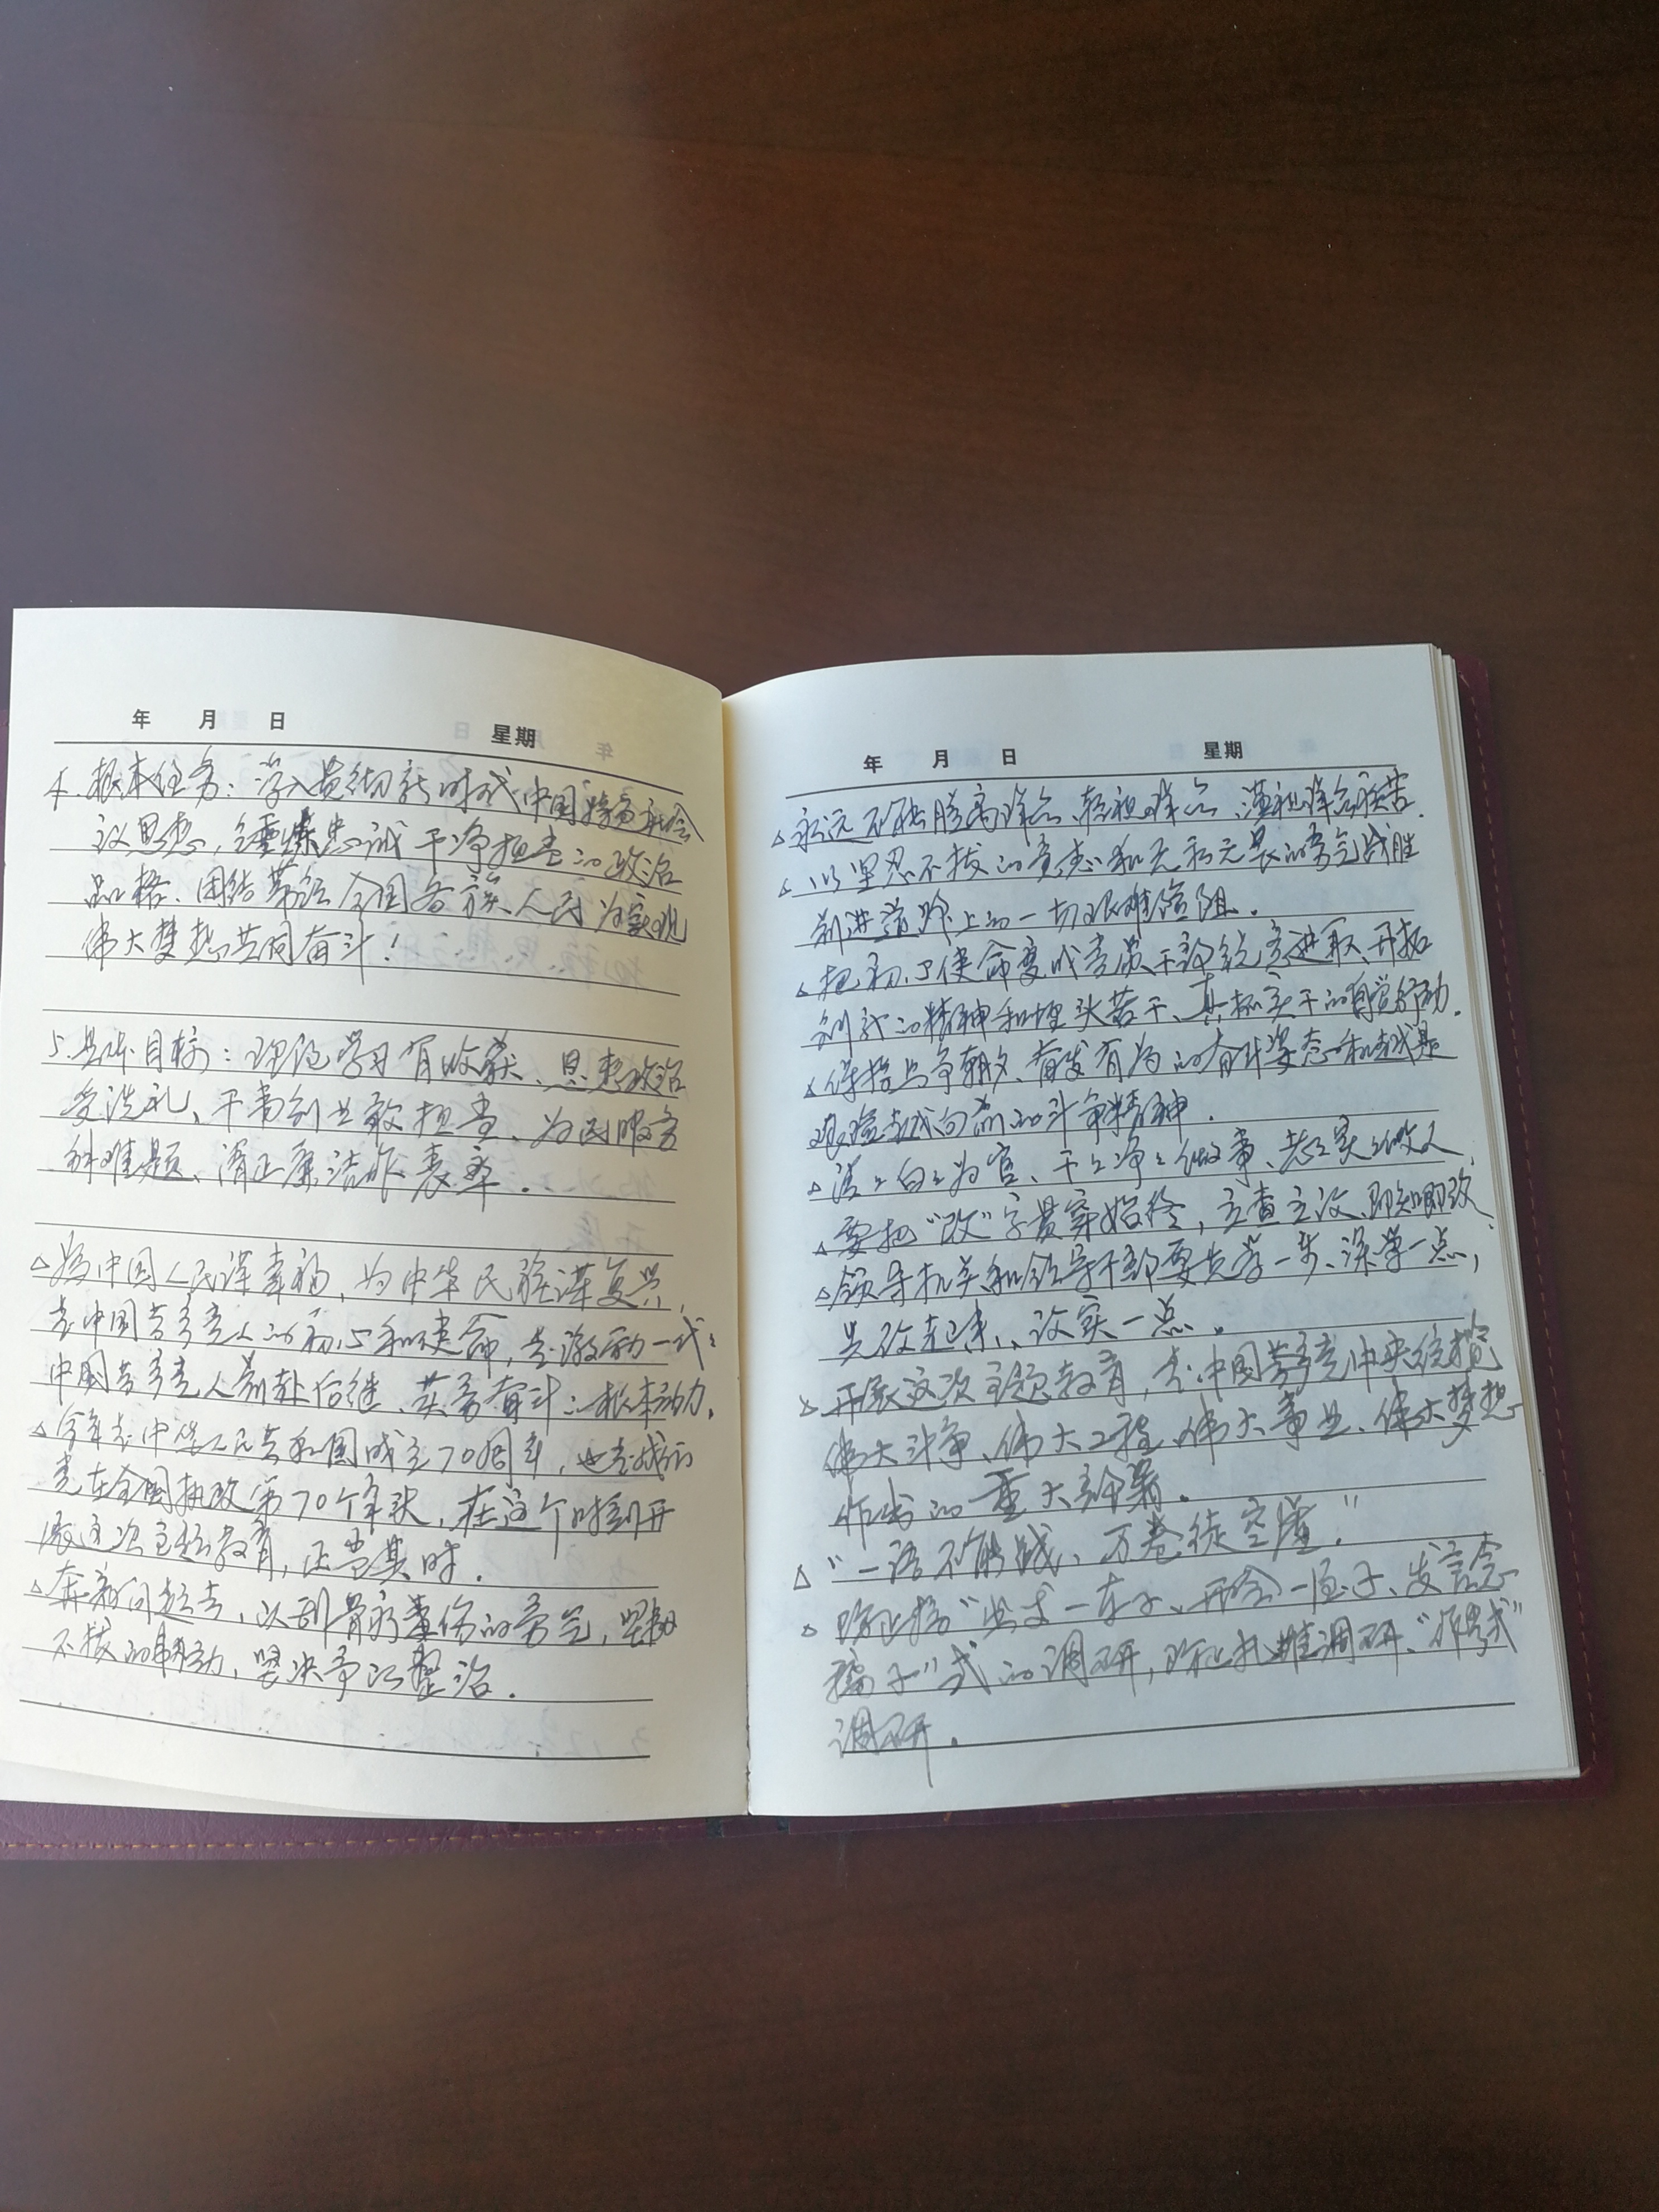 年 月 日 星期
4.根本任务:深入贯彻新时代中国特色社会
主义思想,锤炼忠诚干净担当的政治
品格,团结带领全国各族人民为实现
伟大梦想共同奋斗!
5.具体目标:理论学习有收获、思想政治
受洗礼、干事创业敢担当、为民服务
解难题、清正廉洁作表率.
△为中国人民谋幸福,为中华民族谋复兴,
是中国共产党人的初心和使命,是激励一代々
中国共产党人前赴后继、英勇奋斗的根本动力.
△今年是中华人民共和国成立70周年,也是我们
党在全国执政第70个年头,在这个时刻开
展这次主题教育,正当其时.
△奔着问题去,以刮骨疗毒的勇气,坚韧
不拔的韧劲,坚决予以整治.
年 月 日 星期
△永远不能脱离群众、轻视群众、漠视群众疾苦.
△以坚忍不拔的意志和无私无畏的勇气战胜
前进道路上的一切艰难险阻.
△把初心使命变成党员干部锐意进取、开拓
创新的精神和埋头苦干、真抓实干的自觉行动.
△保持只争朝夕、奋发有为的奋斗姿态和越是
艰险越向前的斗争精神.
△清々白々为官、干々净々做事、老々实々做人.
△要把“改”字贯穿始终,立查立改、即知即改.
△领导机关和领导干部要先学一步、深学一点,
先改起来、改实一点.
△开展这次主题教育,是中国共产党中央统揽
伟大斗争、伟大工程、伟大事业、伟大梦想
作出的重大部署.
△“一语不能践,万卷徒空虚.”
△防止搞“出发一车子、开会一屋子、发言念
稿子”式的调研,防止扎堆调研、“作秀式”
调研.